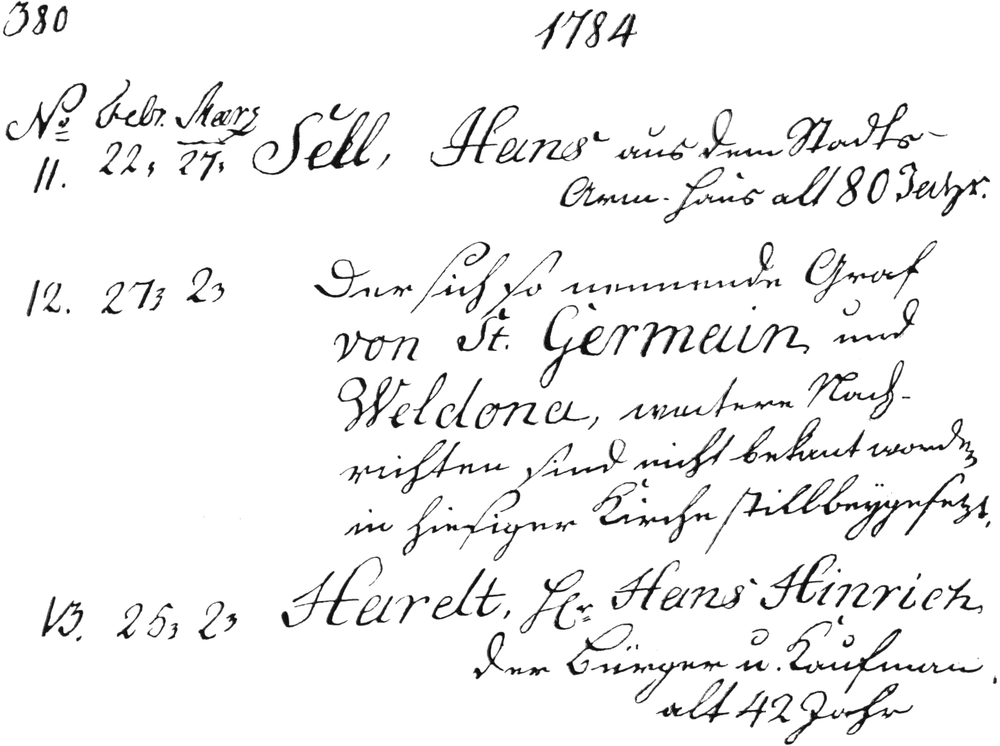 380 1784
No Febr. Marz
11. 22, 27, Sell, Hans aus dem Stadts-
Arm-haus alt 80 Jahr.
12. 27, 2, Der sich so nennende Graf
von St. Germain und
Weldona, weitere Nach-
richten sind nicht bekant worden
in hiesiger Kirche still beygesezt.
13. 25, 2, Hardt, Hr Hans Hinrich,
der Bürger u. Kaufman,
alt 42 Jahr